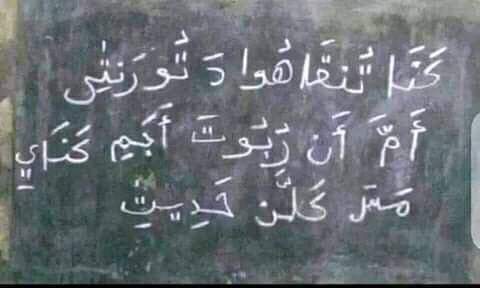 كَنَا تُنقَاهُوا دَ تُورَنثِى
أَمَّ أَن رُبُوتَ أَبَمِ كَنَايِ
مَسَ كَلَّن حَدِيثِ